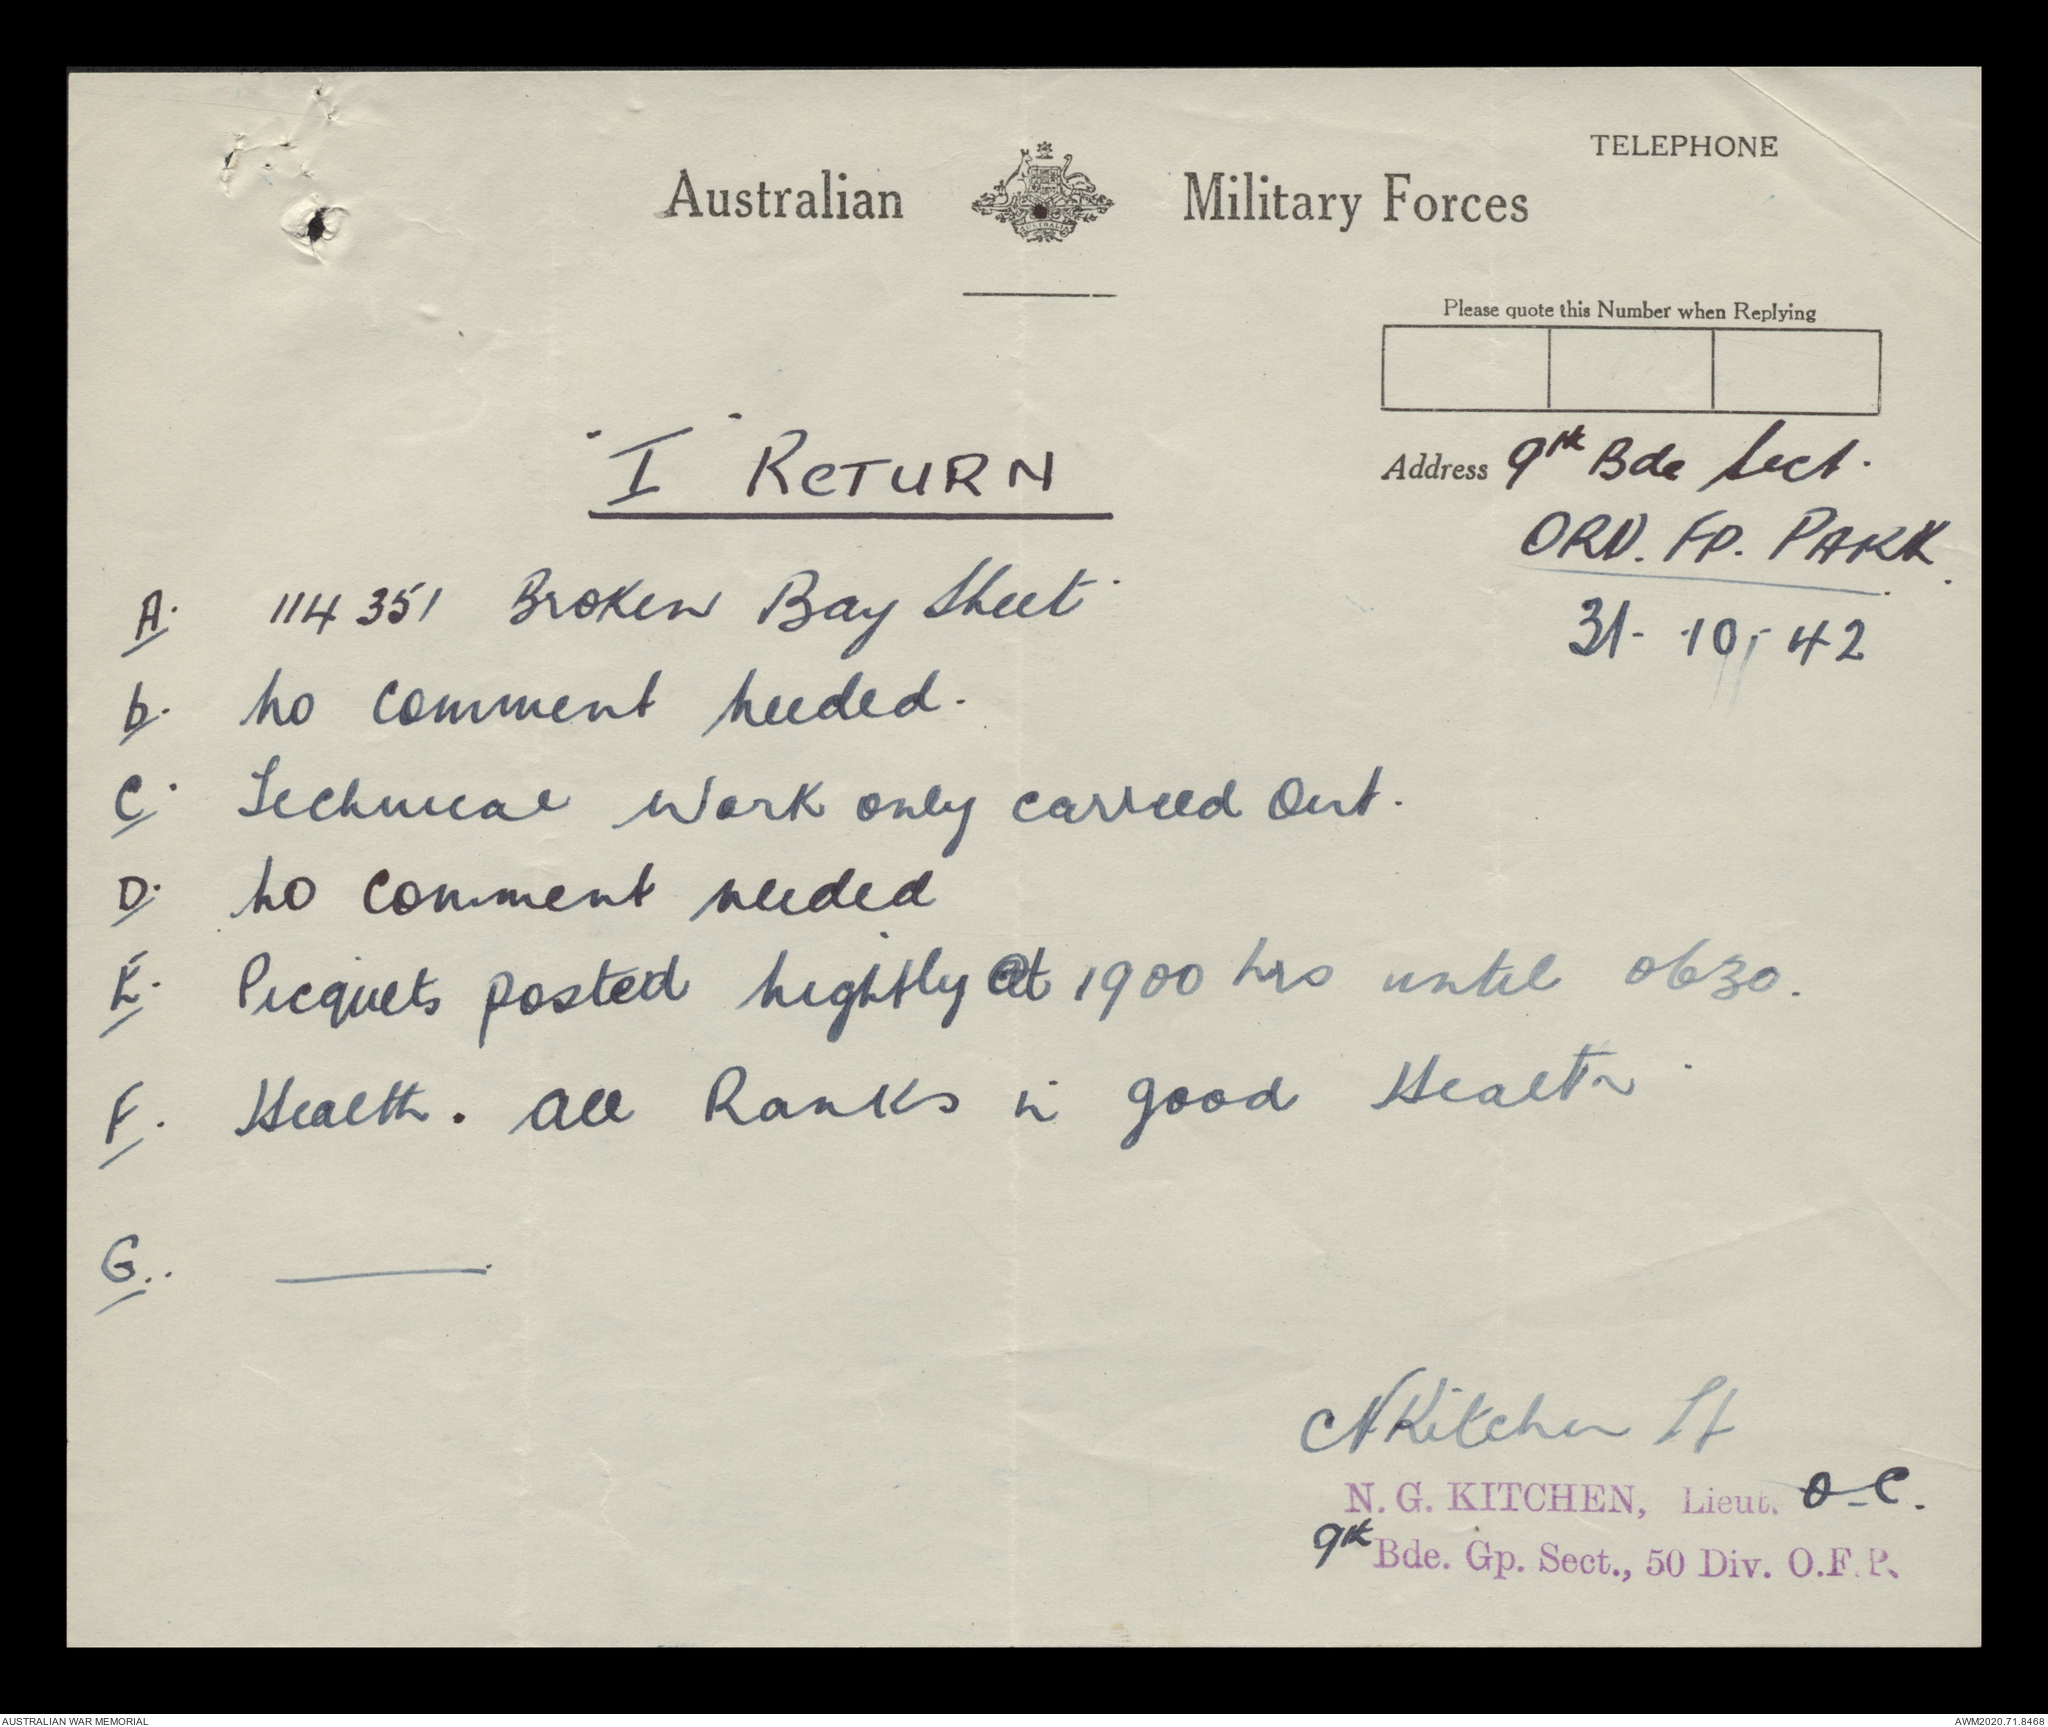 TELEPHONE
Australian Military Forces
AUSTRALIA
Please quote this Number when Replying
Address 9th Bde Sect.
ORD. FD. PARK.
31-10-42
"I" RETURN
A. 114351 Broken Bay Sheet.
b. No comment needed.
C. Technical Work only carried Out.
D. No comment needed
E. Picquets posted nightly @t 1900 hrs until 0630.
F. Health. All Ranks in good Health.
G. ______
N Kitchen Lt
N. G. KITCHEN, Lieut. O-C.
9th Bde. Gp. Sect., 50 Div. O.F.P.
AUSTRALIAN WAR MEMORIAL
AWM2020.71.8468